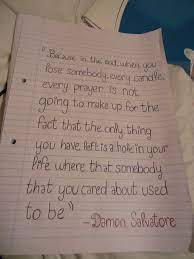 "Because in the end, when you
lose somebody, every candle,
every prayer is not
going to make up for the
fact that the only thing
you have left is a hole in your
life where that somebody
that you cared about used
to be"
-Damon Salvatore